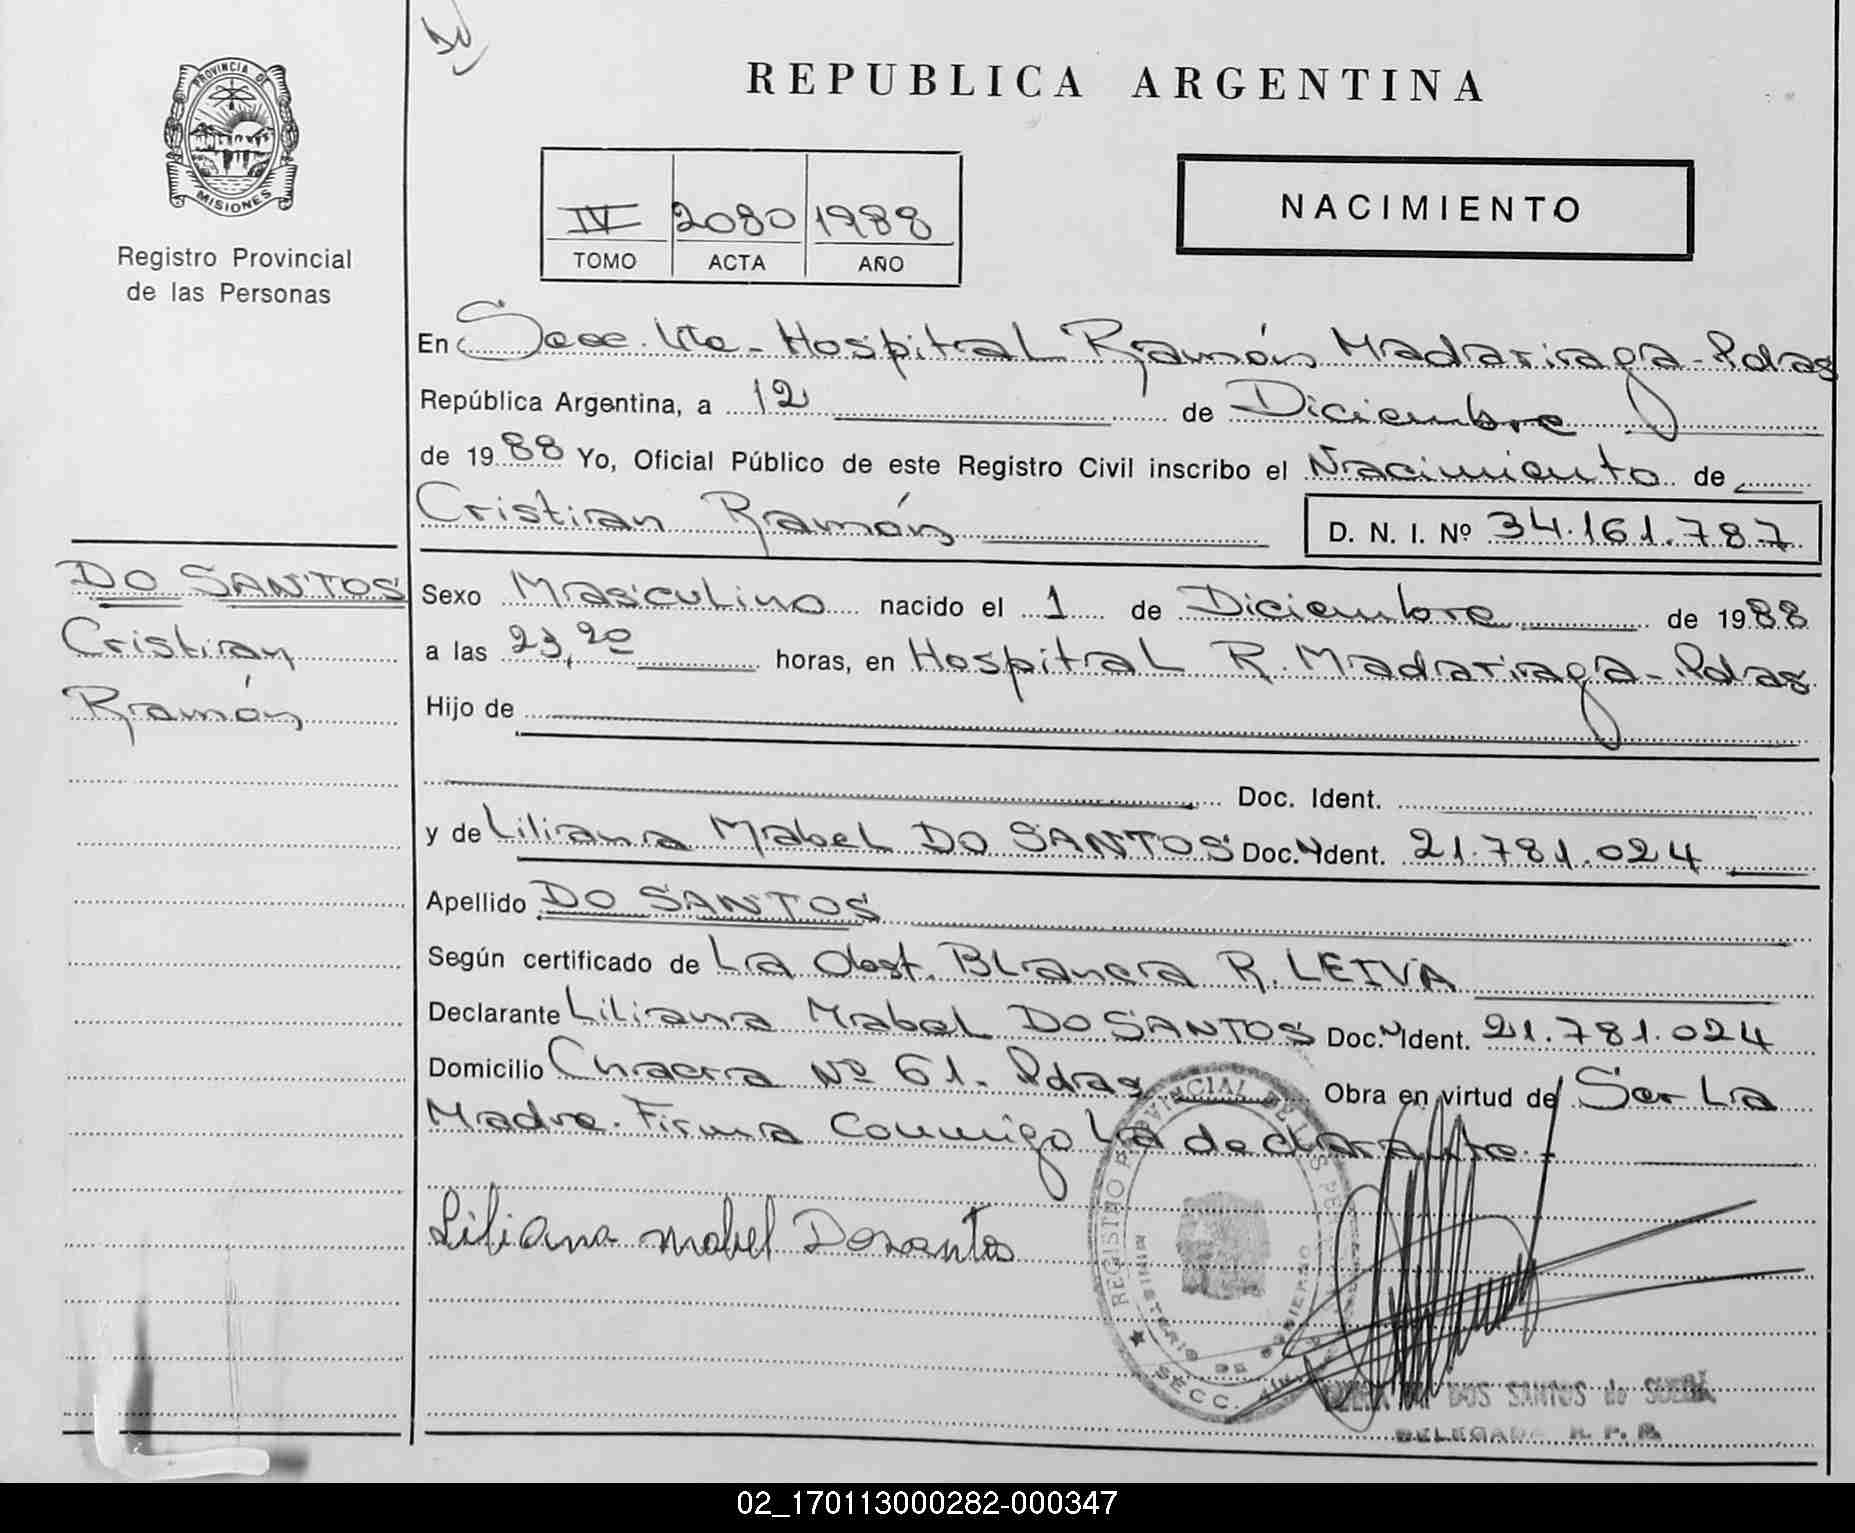 PROVINCIA DE
MISIONES
Registro Provincial
de las Personas
REPUBLICA ARGENTINA
IV 2080 1988
TOMO ACTA AÑO
NACIMIENTO
En Secc. Vta - Hospital Ramón Madariaga - Pdas
República Argentina, a 12 de Diciembre
de 1988 Yo, Oficial Público de este Registro Civil inscribo el Nacimiento de
Cristian Ramón
D. N. I. Nº 34.161.787
DO SANTOS
Cristian
Ramón
Sexo Masculino nacido el 1 de Diciembre de 1988
a las 23,20 horas, en Hospital R. Madariaga - Pdas
Hijo de
Doc. Ident.
y de Liliana Mabel DO SANTOS Doc. Ident. 21.781.024
Apellido DO SANTOS
Según certificado de La Obst. Blanca R. LEIVA
Declarante Liliana Mabel DO SANTOS Doc. Ident. 21.781.024
Domicilio Chacra Nº 61. Pdas Obra en virtud de Ser La
Madre. Firma Conmigo La declarante.-
Liliana mabel Dosantos
REGISTRO PROVINCIAL DE LAS PE
MINISTERIO DE GOBIERNO
SECC.
DOS SANTOS de
DELEGADA R. P. P.
02_170113000282-000347